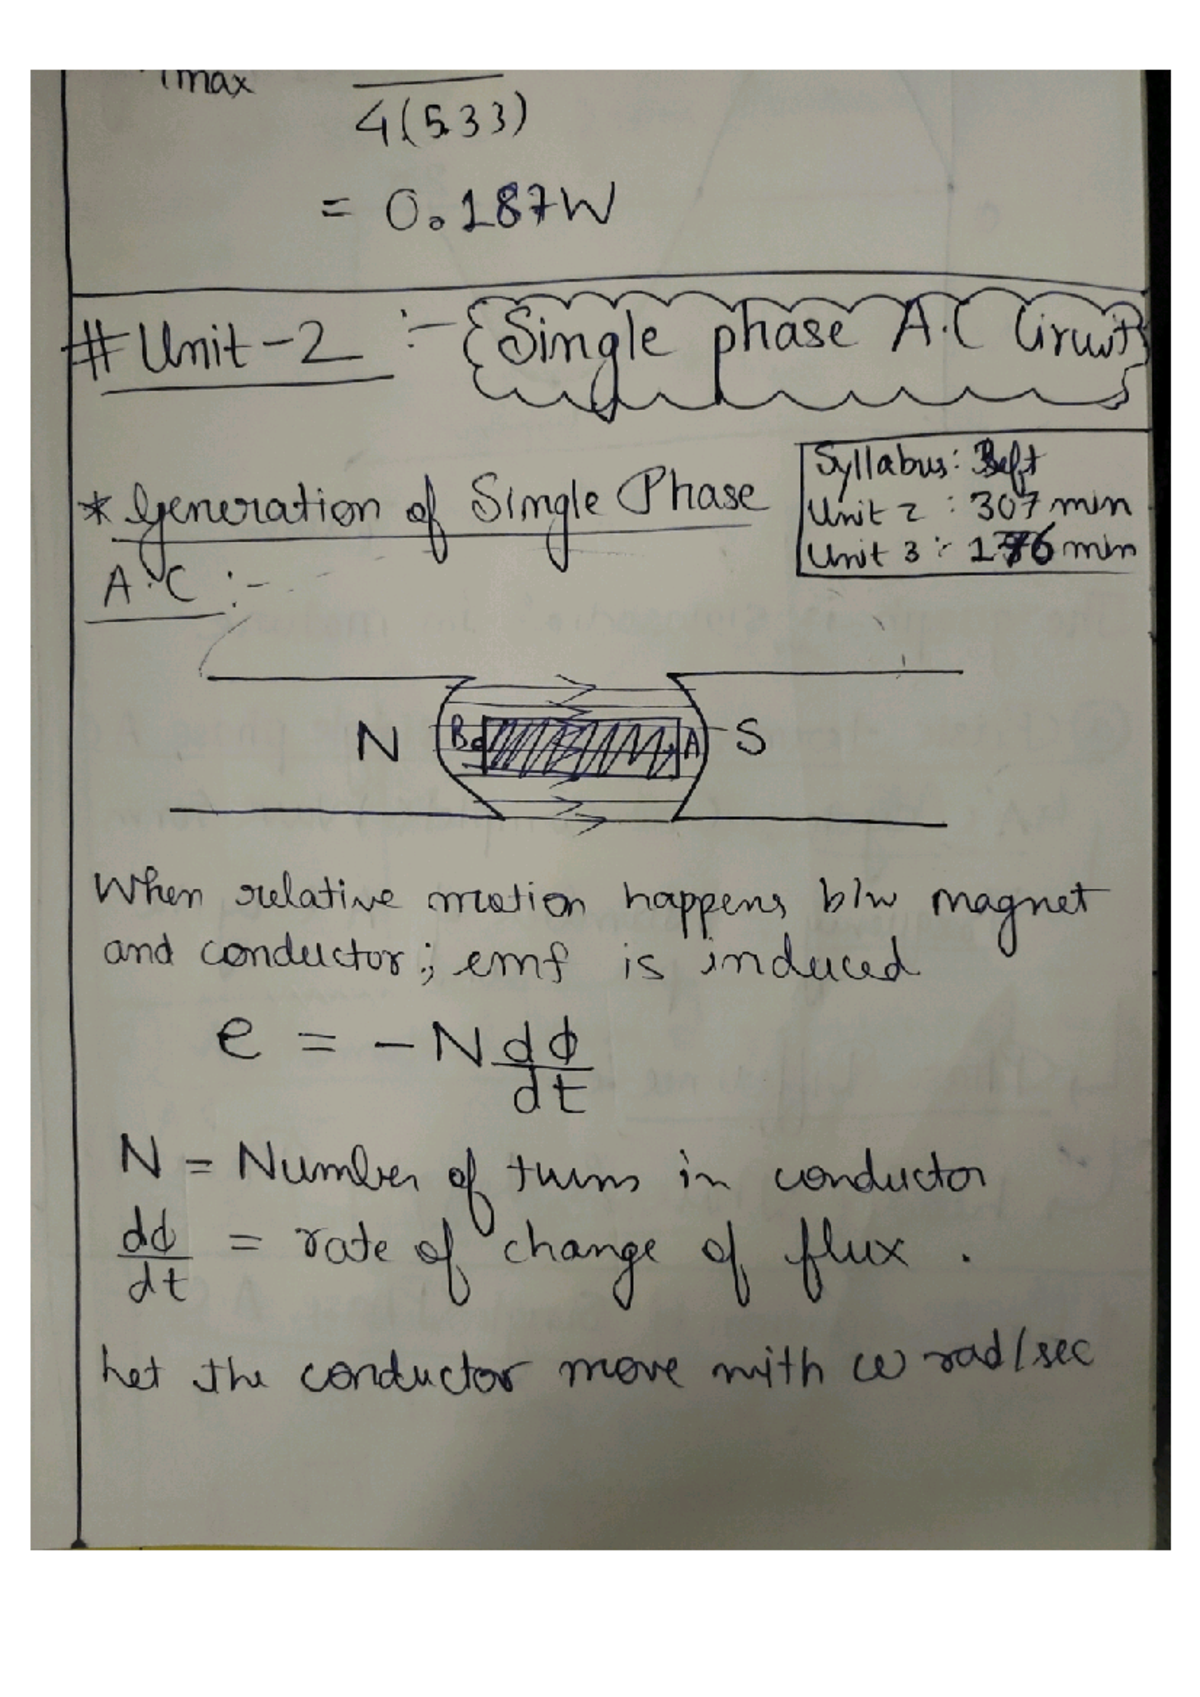 max
4(5.33)
= 0.187W
# Unit-2 :- Single phase A.C Circuit
Syllabus: left
Unit 2 : 307 min
Unit 3 :- 176 min
* Generation of Single Phase
A.C :-
N B A S
When relative motion happens b/w magnet
and conductor; emf is induced
e = - N dϕ/dt
N = Number of turns in conductor
dϕ/dt = rate of change of flux .
Let the conductor move with ω rad/sec